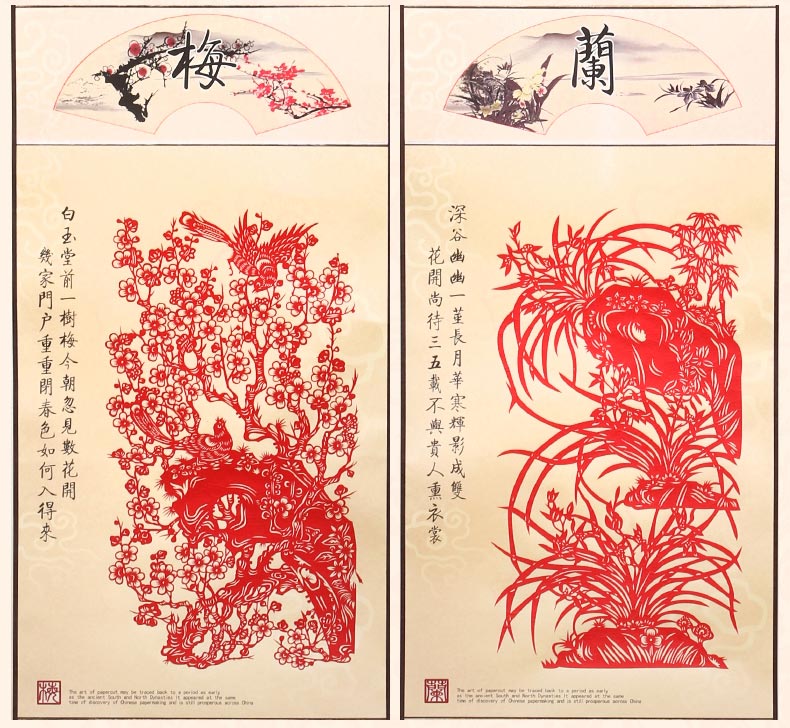 梅
白玉堂前一樹梅今朝忽見數花開
幾家門户重重閉春色如何入得來
梅
The art of papercut may be traced back to a period as early
as the ancient South and North Dynasties It appeared at the same
time of discovery of Chinese papermaking and is still prosperous across China
蘭
深谷幽幽一堇長月華寒輝影成雙
花開尚待三五載不與貴人熏衣裳
蘭
The art of papercut may be traced back to a period as early
as the ancient South and North Dynasties It appeared at the same
time of discovery of Chinese papermaking and is still prosperous across China